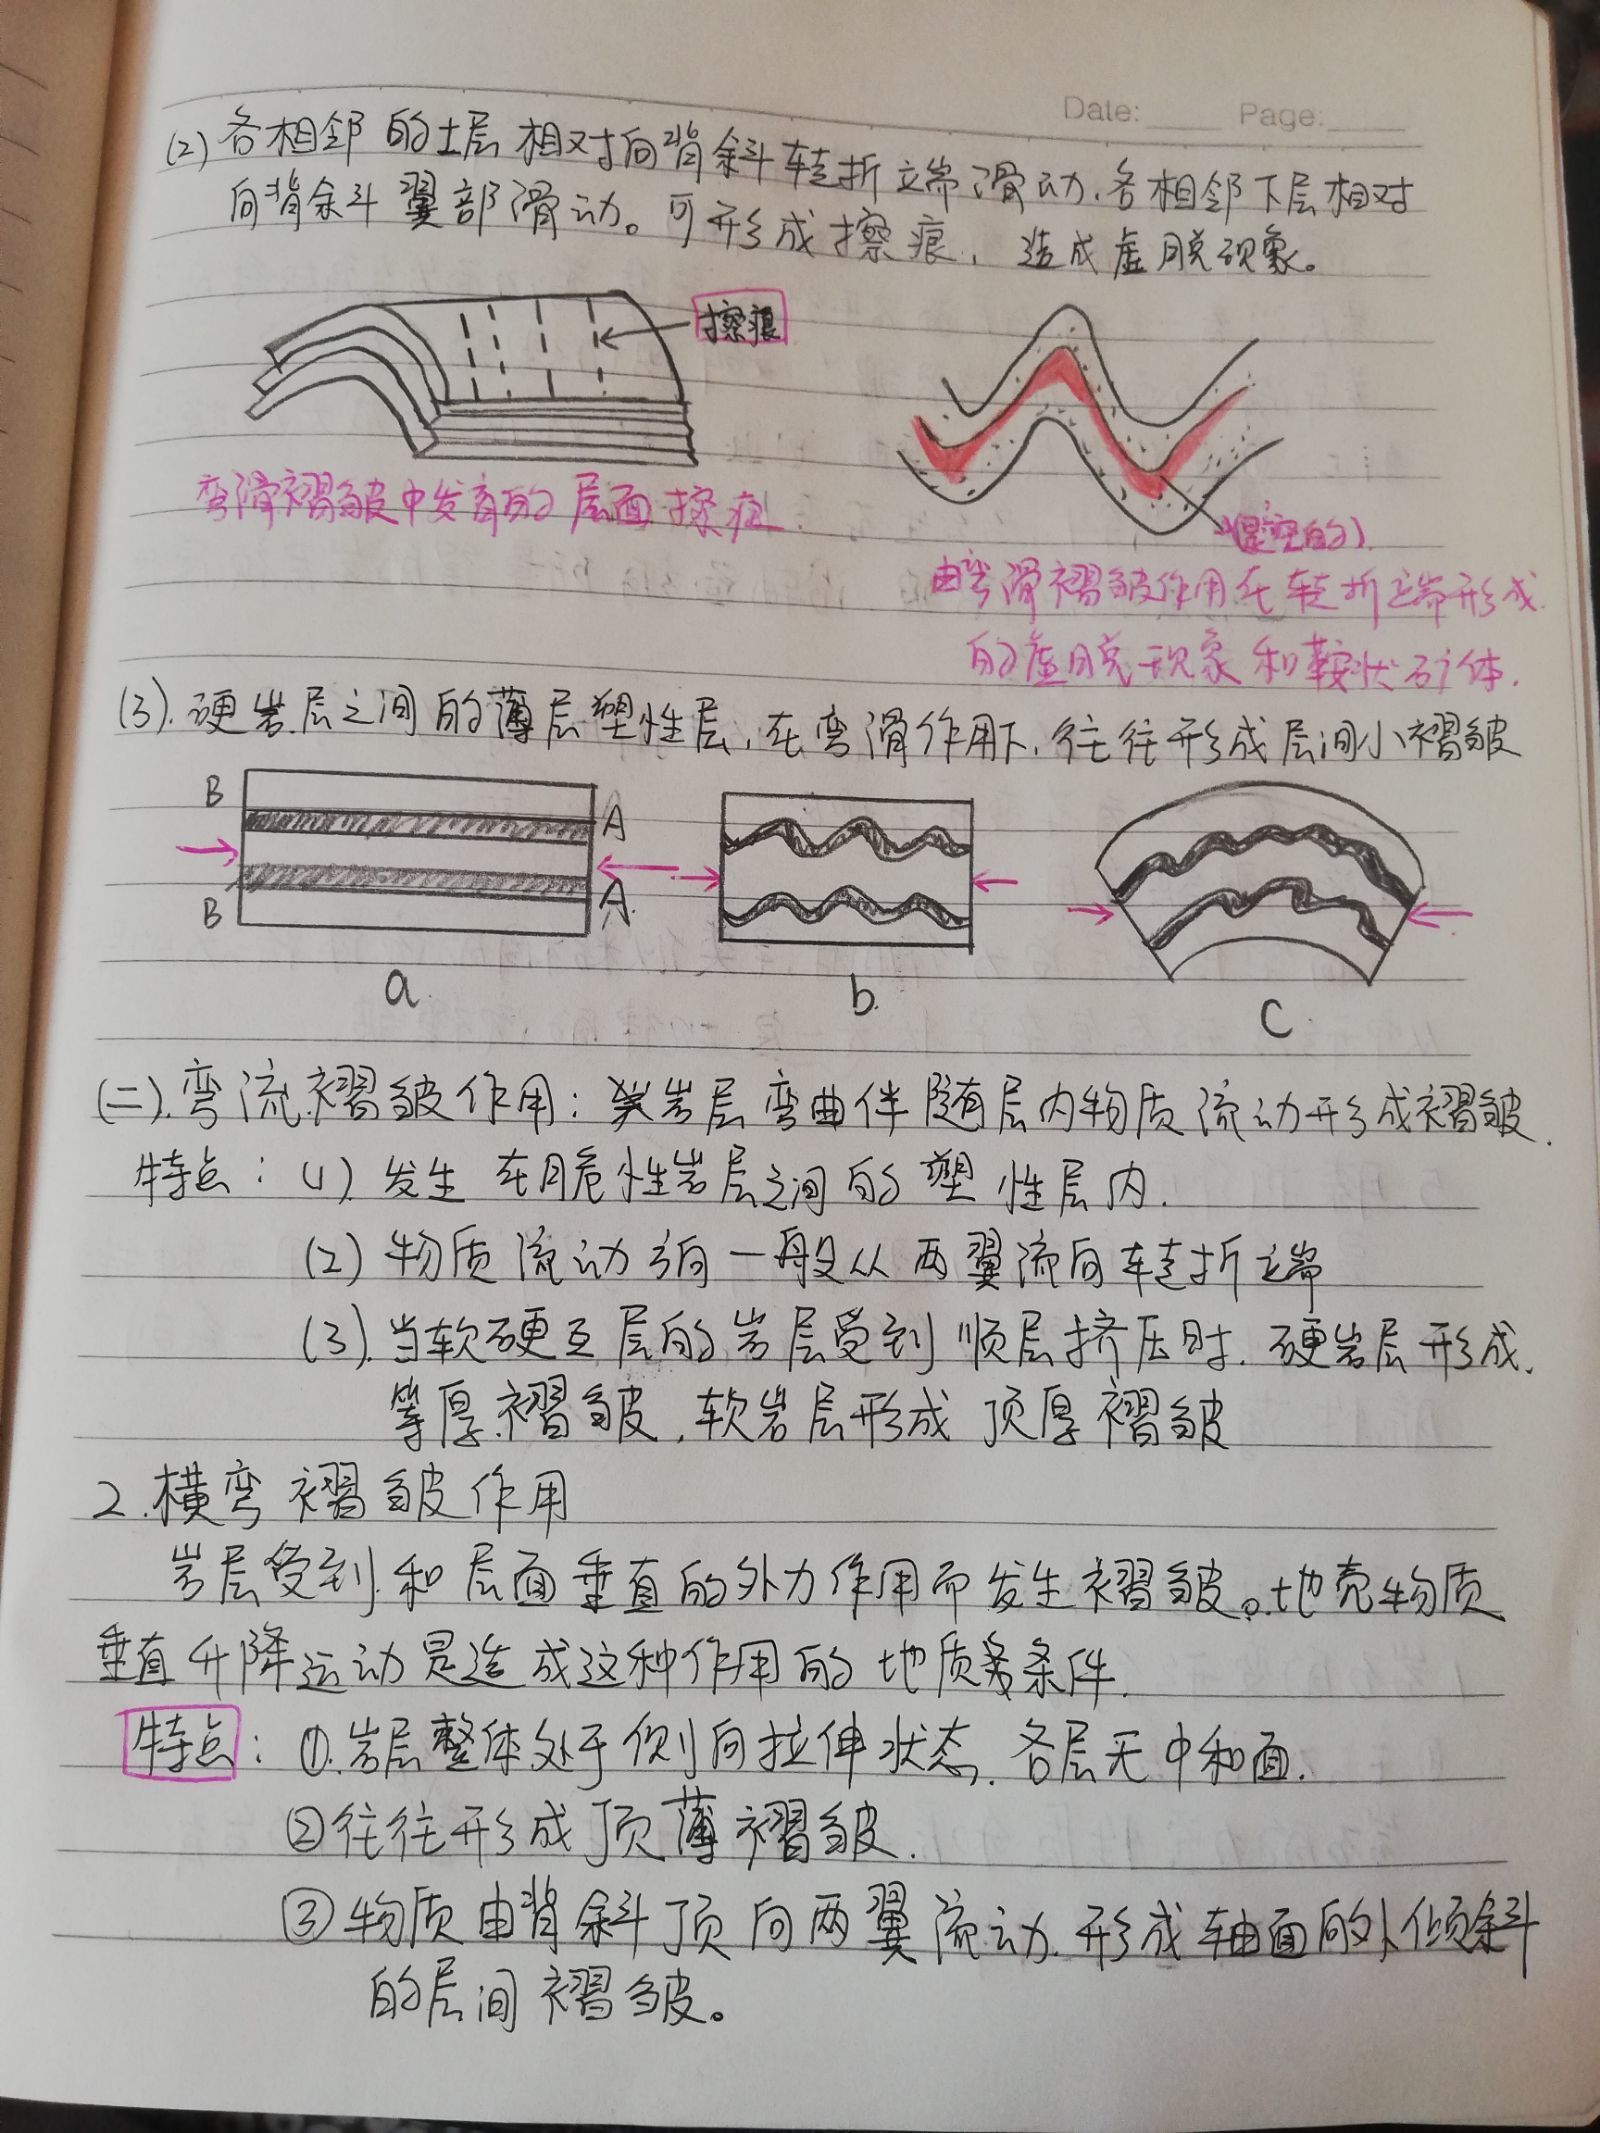 Date: Page:
(2) 各相邻的上层相对向背斜转折端滑动.各相邻下层相对
向背斜翼部滑动。可形成擦痕,造成虚脱现象。
擦痕
弯滑褶皱中发育的层面擦痕.
(是空的)
由弯滑褶皱作用在转折端形成
的虚脱现象和鞍状矿体.
(3).硬岩层之间的薄层塑性层,在弯滑作用下,往往形成层间小褶皱
B A
B A
a b c
(二).弯流褶皱作用:岩层弯曲伴随层内物质流动形成褶皱.
特点:(1).发生在脆性岩层之间的塑性层内.
(2)物质流动方向一般从两翼流向转折端
(3).当软硬互层的岩层受到顺层挤压时.硬岩层形成.
等厚褶皱,软岩层形成顶厚褶皱
2.横弯褶皱作用
岩层受到和层面垂直的外力作用而发生褶皱。地壳物质
垂直升降运动是造成这种作用的地质条件.
特点:①.岩层整体处于侧向拉伸状态.各层无中和面.
②往往形成顶薄褶皱.
③物质由背斜顶向两翼流动.形成轴面的外倾斜
的层间褶皱。